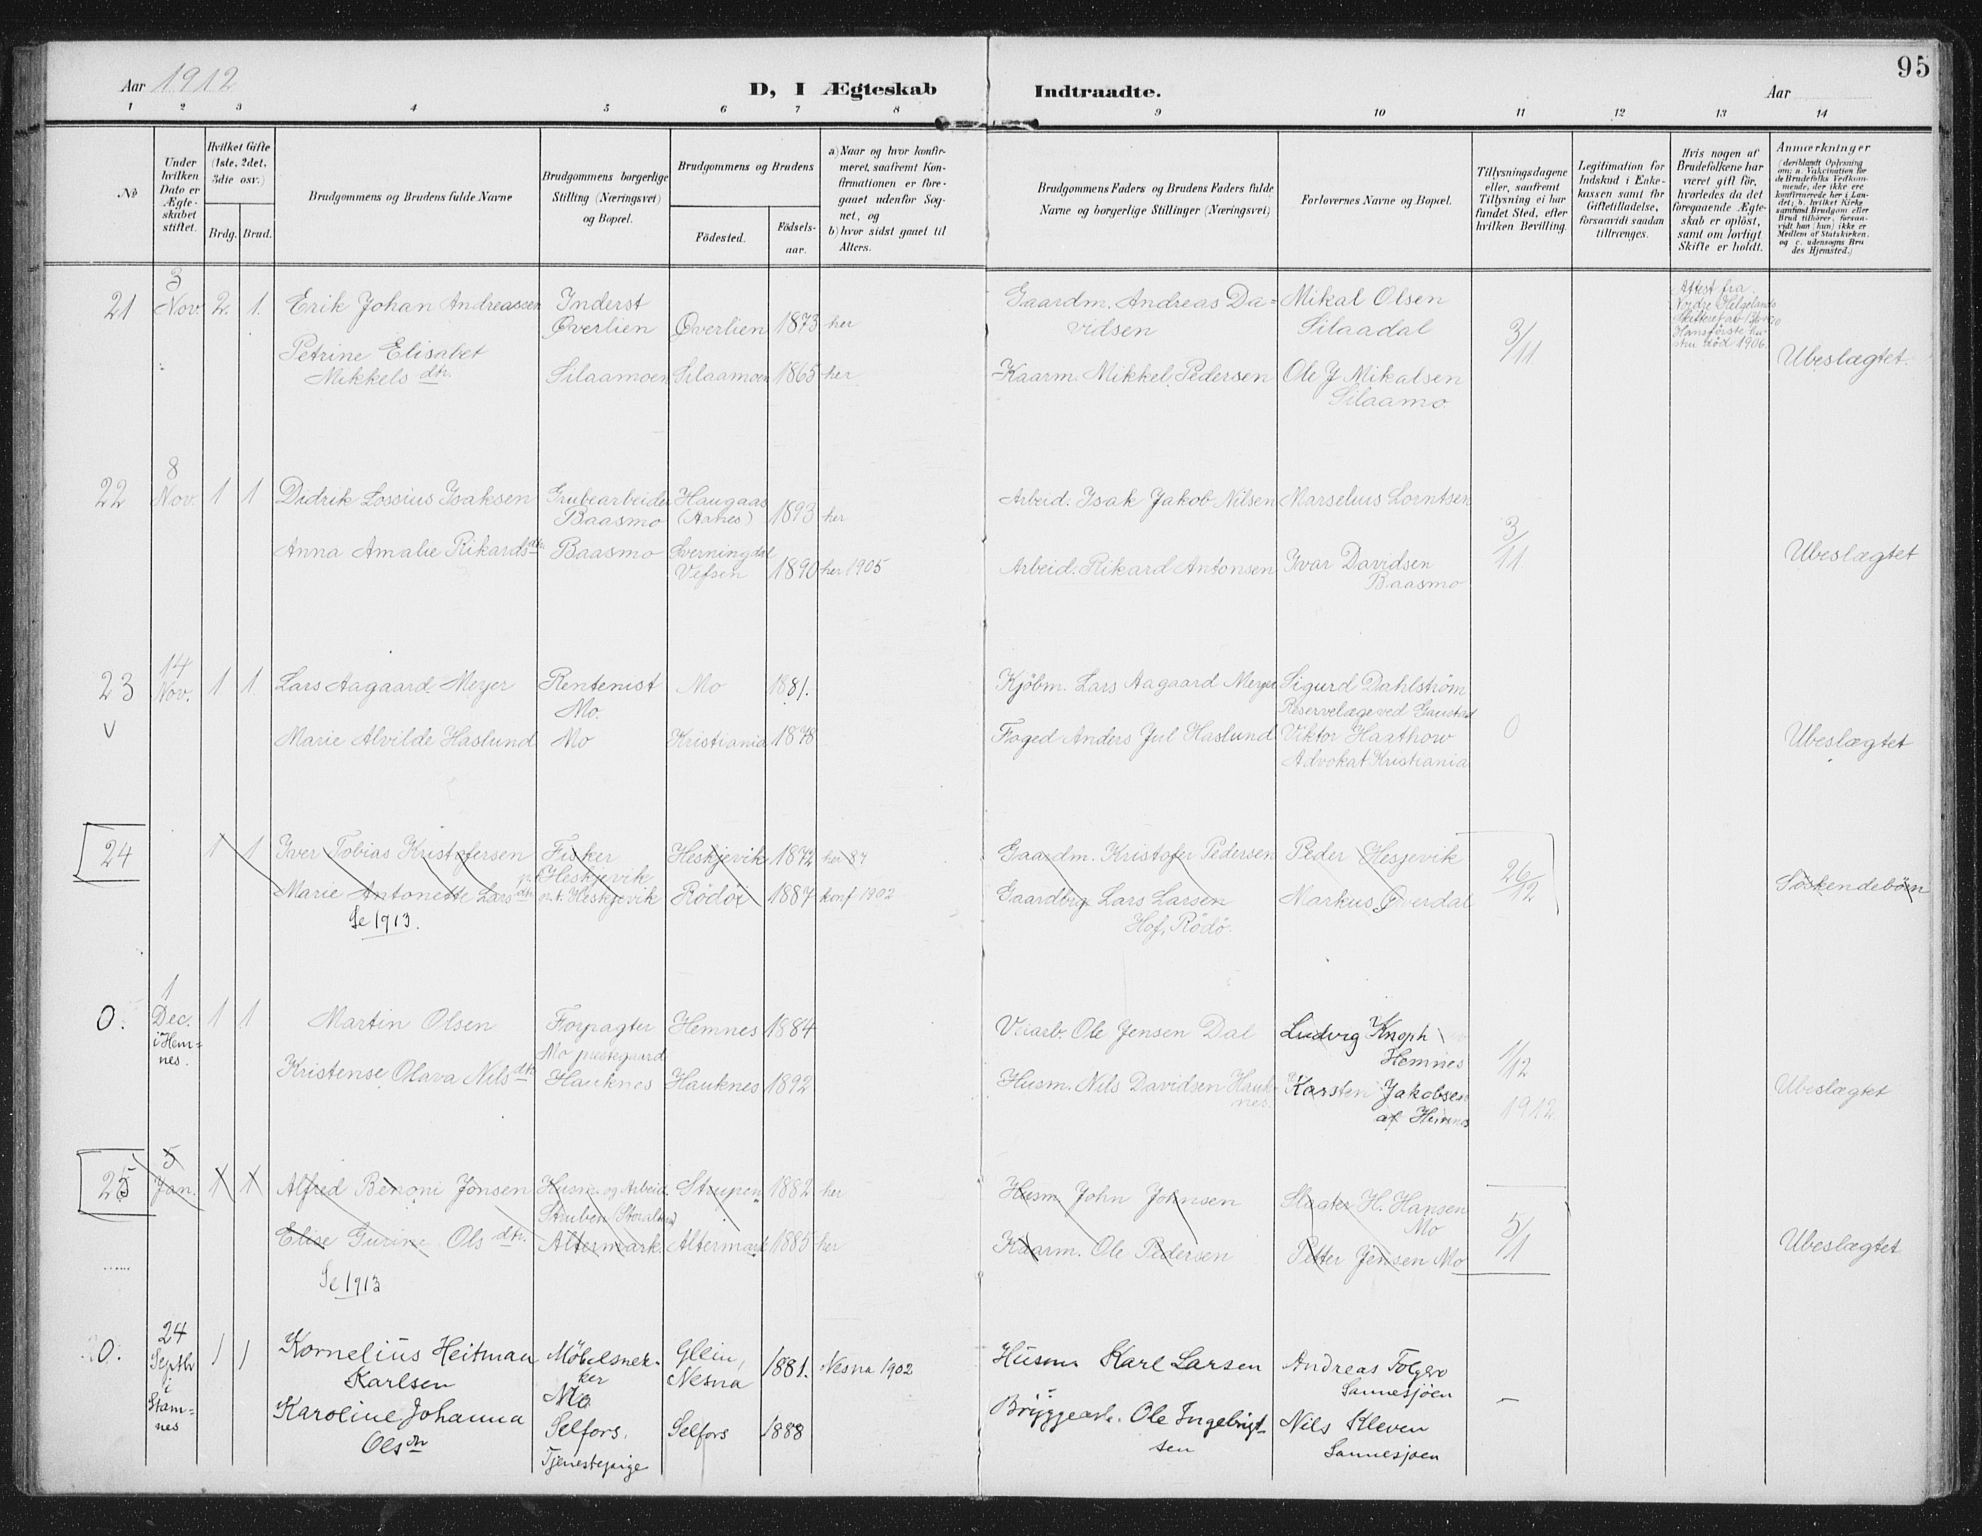 95
Aar 1912
D, I Ægteskab Indtraadte.
Aar
1 2 3 4 5 6 7 8 9 10 11 12 13 14
No
Under hvilken Dato er Ægteskabet stiftet.
Hvilket Gifte (1ste, 2det, 3die osv.)
Brdg. Brud.
Brudgommens og Brudens fulde Navne
Brudgommens borgerlige Stilling (Næringsvei) og Bopæl.
Brudgommens og Brudens
Fødested.
Fødselsaar.
a) Naar og hvor konfirmeret, saafremt Konfirmationen er foregaaet udenfor Sognet, og
b) hvor sidst gaaet til Alters.
Brudgommens Faders og Brudens Faders fulde Navne og borgerlige Stillinger (Næringsvei)
Forlovernes Navne og Bopæl.
Tillysningsdagene eller, saafremt Tillysning ei har fundet Sted, efter hvilken Bevilling.
Legitimation for Indskud i Enkekassen samt for Giftetilladelse, forsaavidt saadan tiltrænges.
Hvis nogen af Brudefolkene har været gift før, hvorledes da det foregaaende Ægteskab er opløst, samt om lovligt Skifte er holdt.
Anmærkninger
(deriblandt Oplysning om: a. Vakcination for de Brudefolks Vedkommende, der ikke ere konfirmerede her i Landet; b. hvilket Kirkesamfund Brudgom eller Brud tilhører, forsaavidt han (hun) ikke er Medlem af Statskirken, og c. udensogns Brudes Hjemsted.)
21 3 Nov. 2. 1. Erik Johan Andreassen Inderst Øverlien Øverlien 1873 her
Gaardm. Andreas Davidsen Mikal Olsen Silaadal 3/11
Attest fra Nordre Helgelands
Hans første hu-
stru død 1906.
Petrine Elisabet Mikkels dtr. Silaamoen Silaamoen 1865 her
Kaarm. Mikkel Pedersen Ole J Mikalsen Silaamo Ubeslægtet.
22 8 Nov. 1 1 Didrik Lossius Isaksen Grubearbeider Baasmo Haugaas (Aanes) 1893 her
Arbeid. Isak Jakob Nilsen Marselius Lorntsen 3/11
Anna Amalie Rikards dtr. Baasmo Sverningdal Vefsen 1890 her 1905
Arbeid. Rikard Antonsen Ivar Davidsen Baasmo Ubeslægtet
23 14 Nov. 1 1. Lars Aagaard Meyer Rentenist Mo. Mo 1881.
Kjøbm. Lars Aagaard Meyer Sigurd Dahlström Reservelæge ved Gaustad
V Marie Alvilde Haslund Mo Kristiania 1878
Foged Anders Jul Haslund Viktor Haathow Advokat Kristiania 0 Ubeslægtet
24 1 1 Iver Tobias Kristofersen Fisker Heskjevik Heskjevik 1872 her 87
Gaardm. Kristofer Pedersen Peder Hesjevik 26/12
Marie Antonette Lars dtr. n.t. Heskjevik Rödöi 1887 konf 1902
Gaardbrg Lars Larsen Hof, Rödö. Markus Øverdal Söskendebörn
Se 1913.
0. 1 Dec. i Hemnes. 1 1 Martin Olsen Forpagter Mo prestegaard Hemnes 1884
Ole Jensen Dal Ludvig Knoph Hemnes 1/12 1912
Kristense Olava Nils dtr. Hauknes Hauknes 1892
Husm. Nils Davidsen Hauknes. Karsten Jakobsen af Hemnes Ubeslægtet
25 5 Jan. 1 1 Alfred Benoni Jonsen Husm. og Arbeid. Struben Strupen 1882 her
Husm John Johnsen Slagter H. Hansen Mo 5/1
Elise Gurine Ols dtr. Altermark. Altermark 1885 her
Kaarm. Ole Pedersen Petter Jensen Mo Ubeslægtet
Se 1913
0. 24 Septbr i Stamnes 1 1 Kornelius Heitman Karlsen Möbelsnekker Mo Glein, Nesna 1881. Nesna 1902
Husm Karl Larsen Andreas Tolgero Sannesjöen —
Karoline Johanna Ols dtr Selfors. Tjenestepige Selfors 1888
Bryggearb. Ole Ingebrigtsen Nils Kleven Sannesjoen